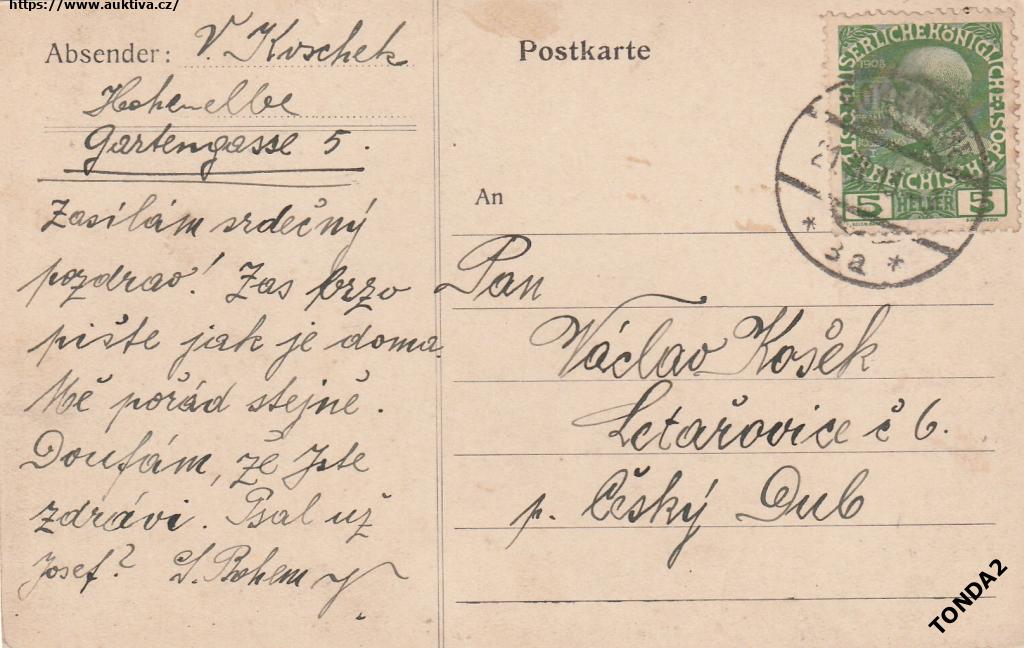 https://www.auktiva.cz/
Absender: V. Koschek
Hohenelbe
Gartengasse 5.
Zasílám srdečný
pozdrav! Zas brzo
pište jak je doma.
Mě pořád stejně.
Doufám, že Jste
zdrávi. Psal už
Josef? S. Bohem
Postkarte
An
Pan
Václav Košek
Letařovice č 6.
p. Český Dub
KAISERLICHE KÖNIGLICHE ÖSTERREICHISCHE
1908
5 HELLER 5
21
* 3a *
TONDA2